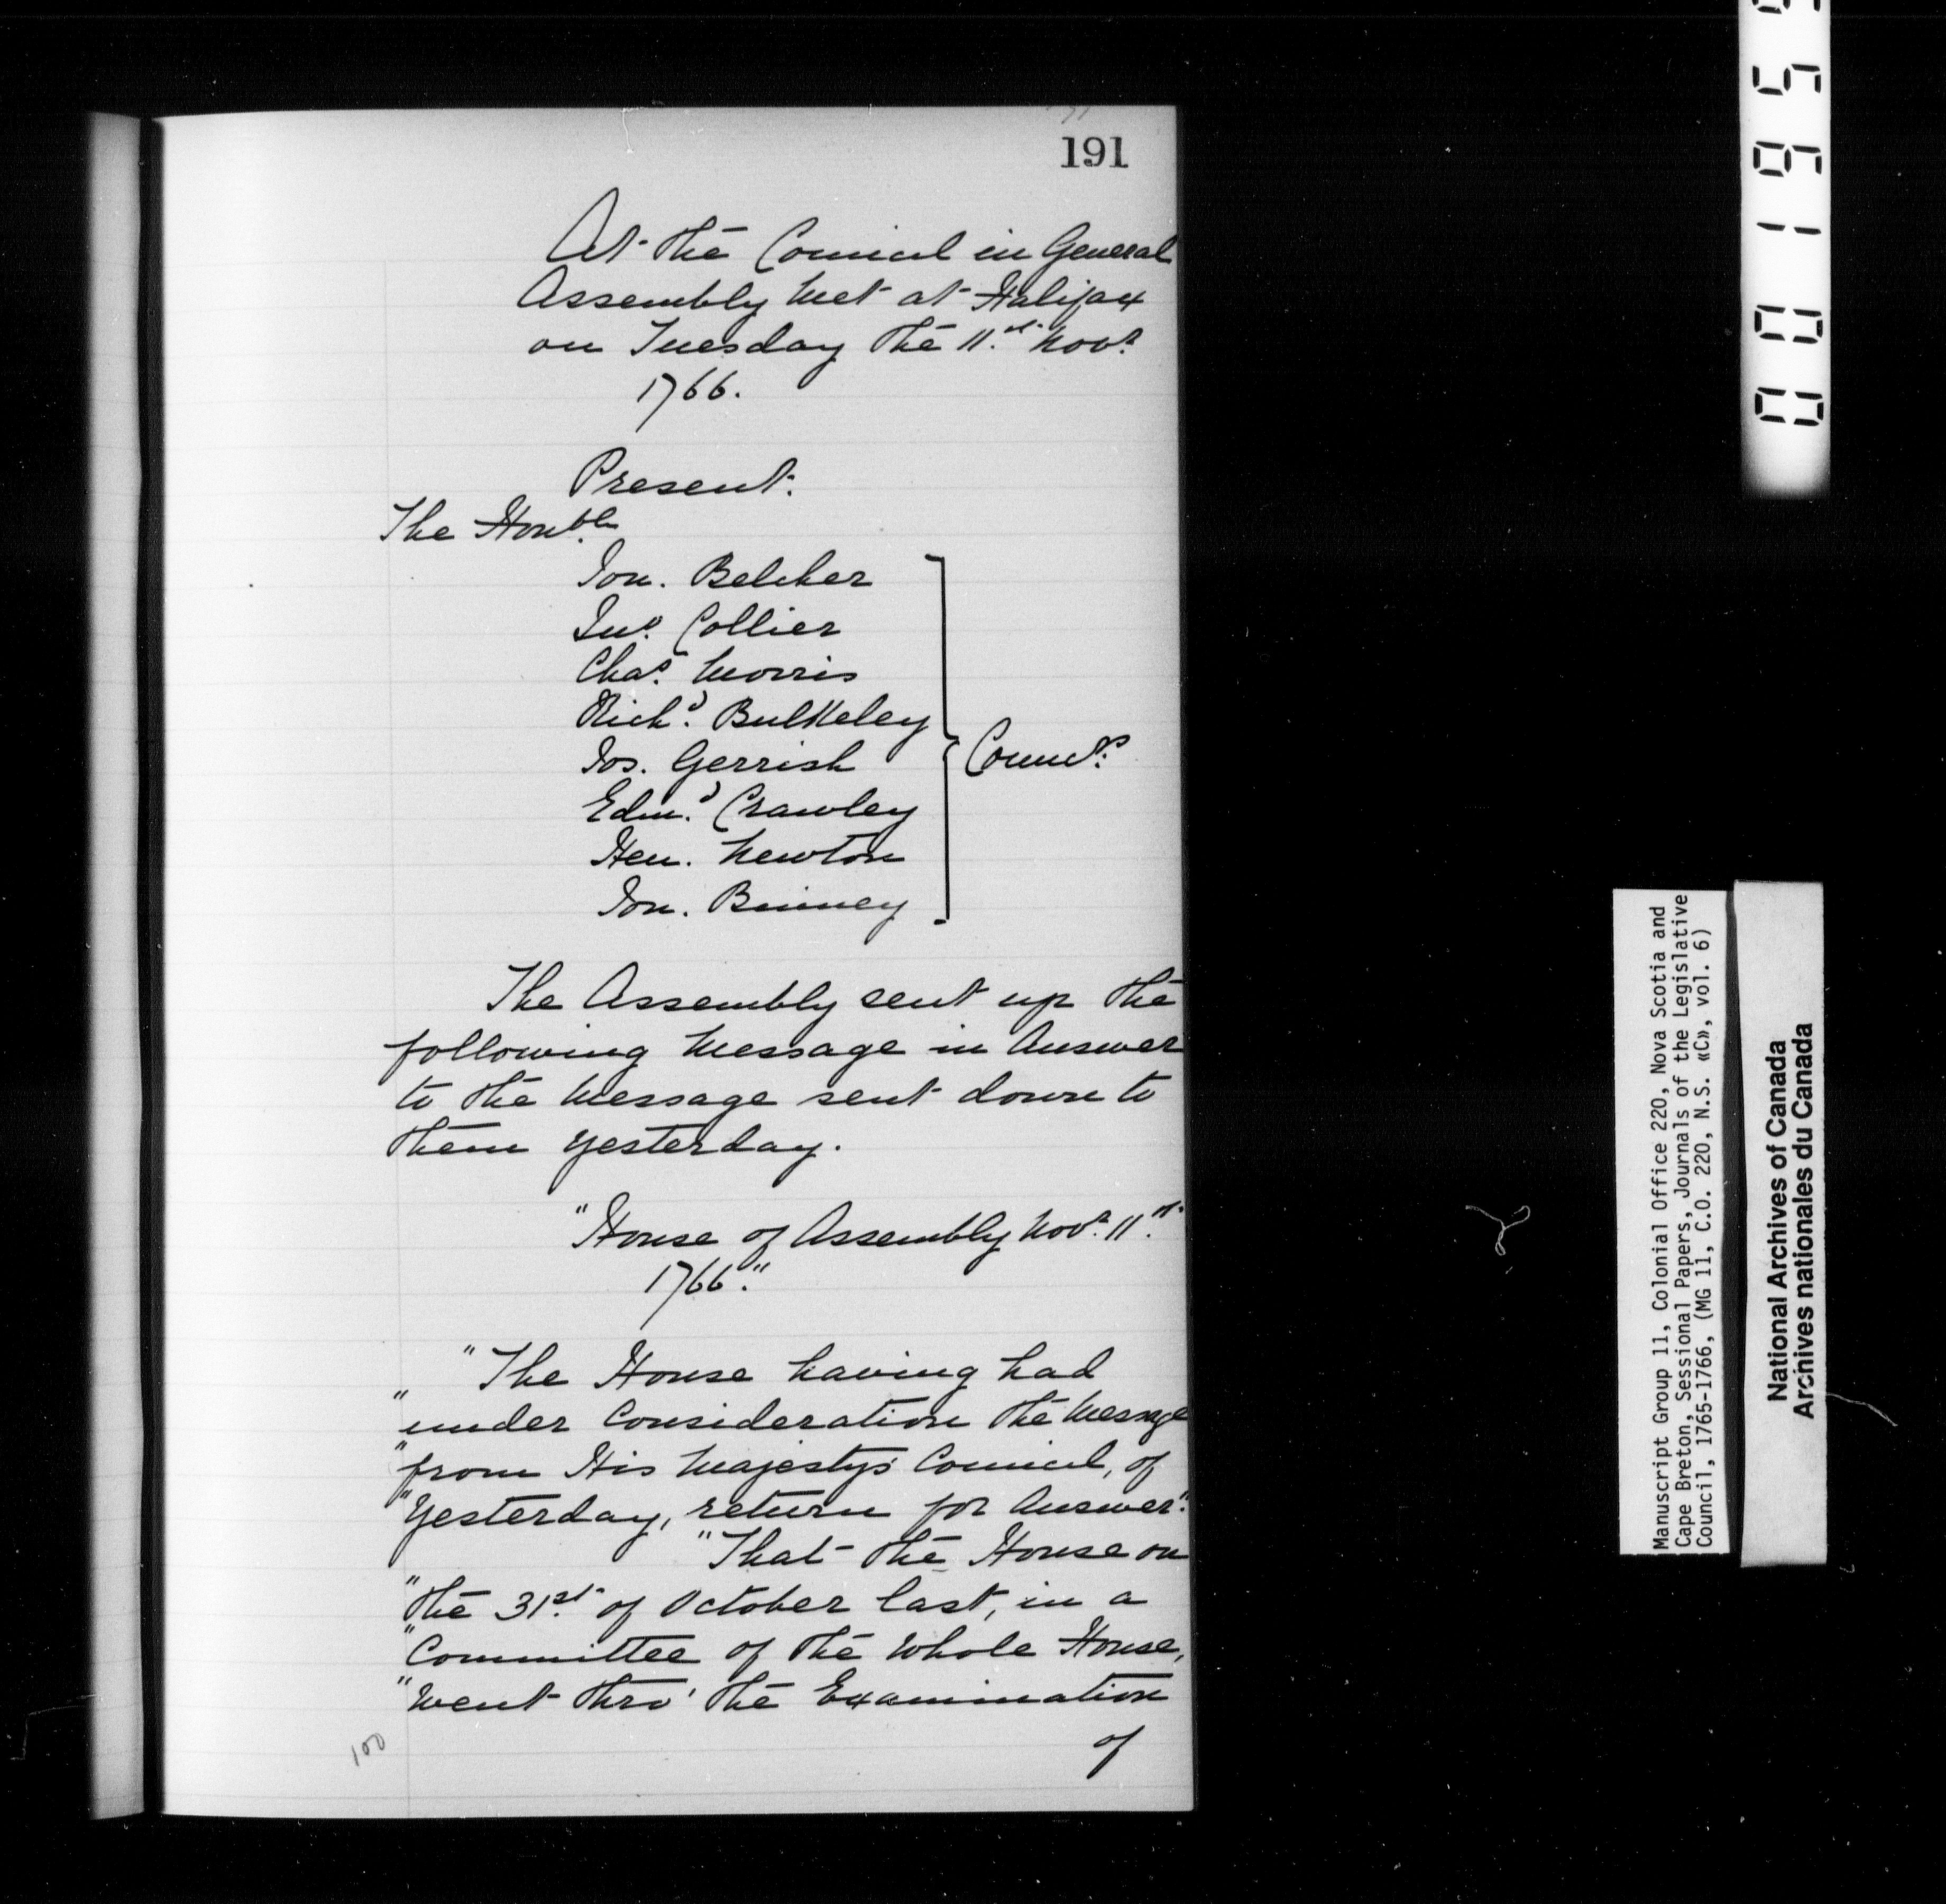 191
At the Council in General
Assembly Met at Halifax
on Tuesday the 11.th Novr.
1766.
Present.
The Honble.
Jon. Belcher
Jno. Collier
Chas. Morris
Richd. Bulkeley
Jos. Gerrish
Edmd. Crawley
Hen. Newton
Jon. Binney
Councrs.
The Assembly sent up the
following Message in Answer
to the Message sent down to
them yesterday.
"House of Assembly Novr. 11.th
1766."
"The House having had
"under Consideration the Message
"from His Majestys Council, of
"Yesterday, return for Answer."
"That the House on
"the 31.st of October last, in a
"Committee of the Whole House,
"Went thro' the Examination
of
100
Manuscript Group 11, Colonial Office 220, Nova Scotia and
Cape Breton, Sessional Papers, Journals of the Legislative
Council, 1765-1766, (MG 11, C.O. 220, N.S. «C», vol. 6)
National Archives of Canada
Archives nationales du Canada